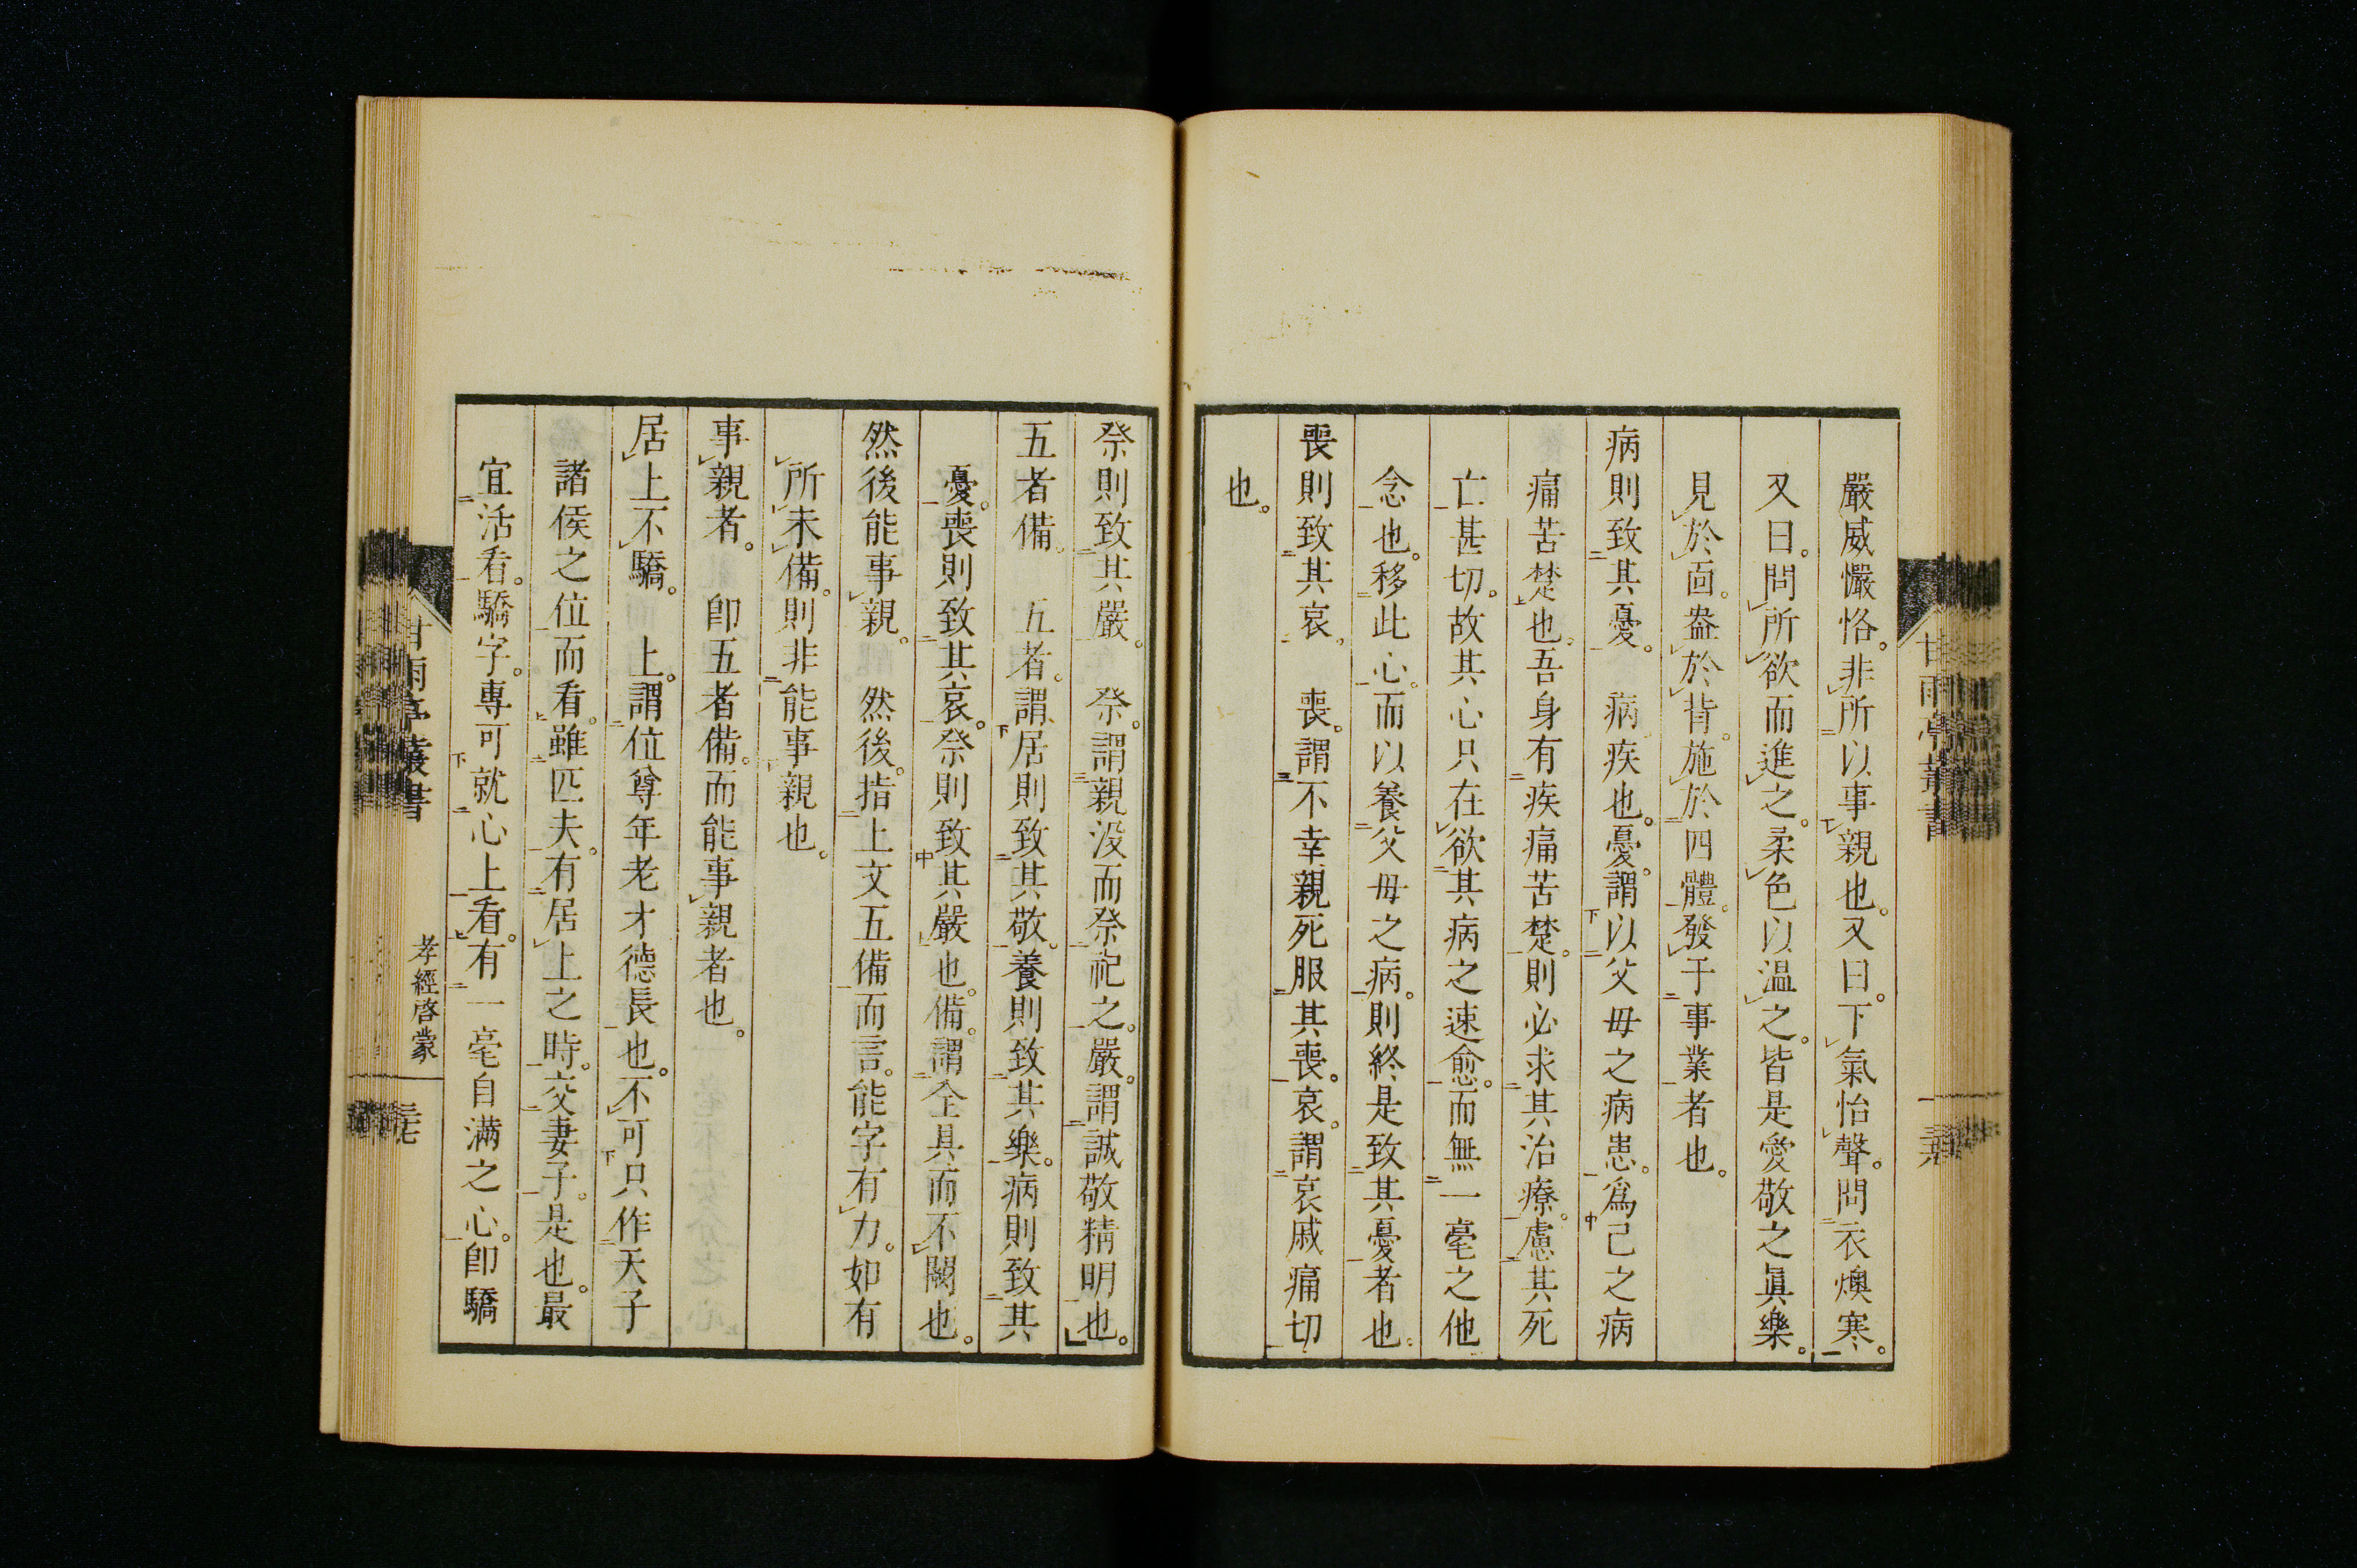 嚴威儼恪。非所以事親也。又曰。下氣怡聲。問衣燠寒。
又曰。問所欲而進之。柔色以溫之。皆是愛敬之眞樂。
見於面。盎於背。施於四體。發于事業者也。
病則致其憂。 病疾也。憂。謂以父母之病患。爲己之病
痛苦楚也。吾身有疾痛苦楚。則必求其治療。慮其死
亡甚切。故其心只在欲其病之速愈。而無一毫之他
念也。移此心。而以養父母之病。則終是致其憂者也。
喪則致其哀。 喪。謂不幸親死服其喪。哀。謂哀戚痛切
也。
甘雨亭叢書
祭則致其嚴。 祭。謂親沒而祭祀之。嚴。謂誠敬精明也。
五者備。 五者。謂居則致其敬。養則致其樂。病則致其
憂。喪則致其哀。祭則致其嚴也。備。謂全具而不闕也。
然後能事親。 然後。指上文五備而言。能字有力。如有
所未備。則非能事親也。
事親者。 卽五者備。而能事親者也。
居上不驕。 上。謂位尊年老才德長也。不可只作天子
諸侯之位而看。雖匹夫。有居上之時。交妻子。是也。最
宜活看。驕字。專可就心上看。有一毫自滿之心。卽驕
甘雨亭叢書 孝經啓蒙